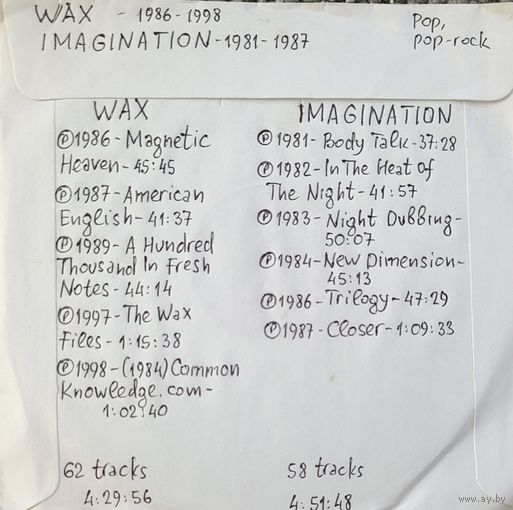 WAX - 1986-1998
Pop,
IMAGINATION-1981-1987
pop-rock
WAX
℗1986-Magnetic
Heaven-45:45
℗1987-American
English-41:37
℗1989-A Hundred
Thousand In Fresh
Notes-44:14
℗1997-The Wax
Files-1:15:38
℗1998-(1984)Common
Knowledge.com-
1:02:40
62 tracks
4:29:56
IMAGINATION
℗1981-Body Talk-37:28
℗1982-In The Heat of
The Night-41:57
℗1983-Night Dubbing-
50:07
℗1984-New Dimension-
45:13
℗1986-Trilogy-47:29
℗1987-Closer-1:09:33
58 tracks
4:51:48
www.ay.by